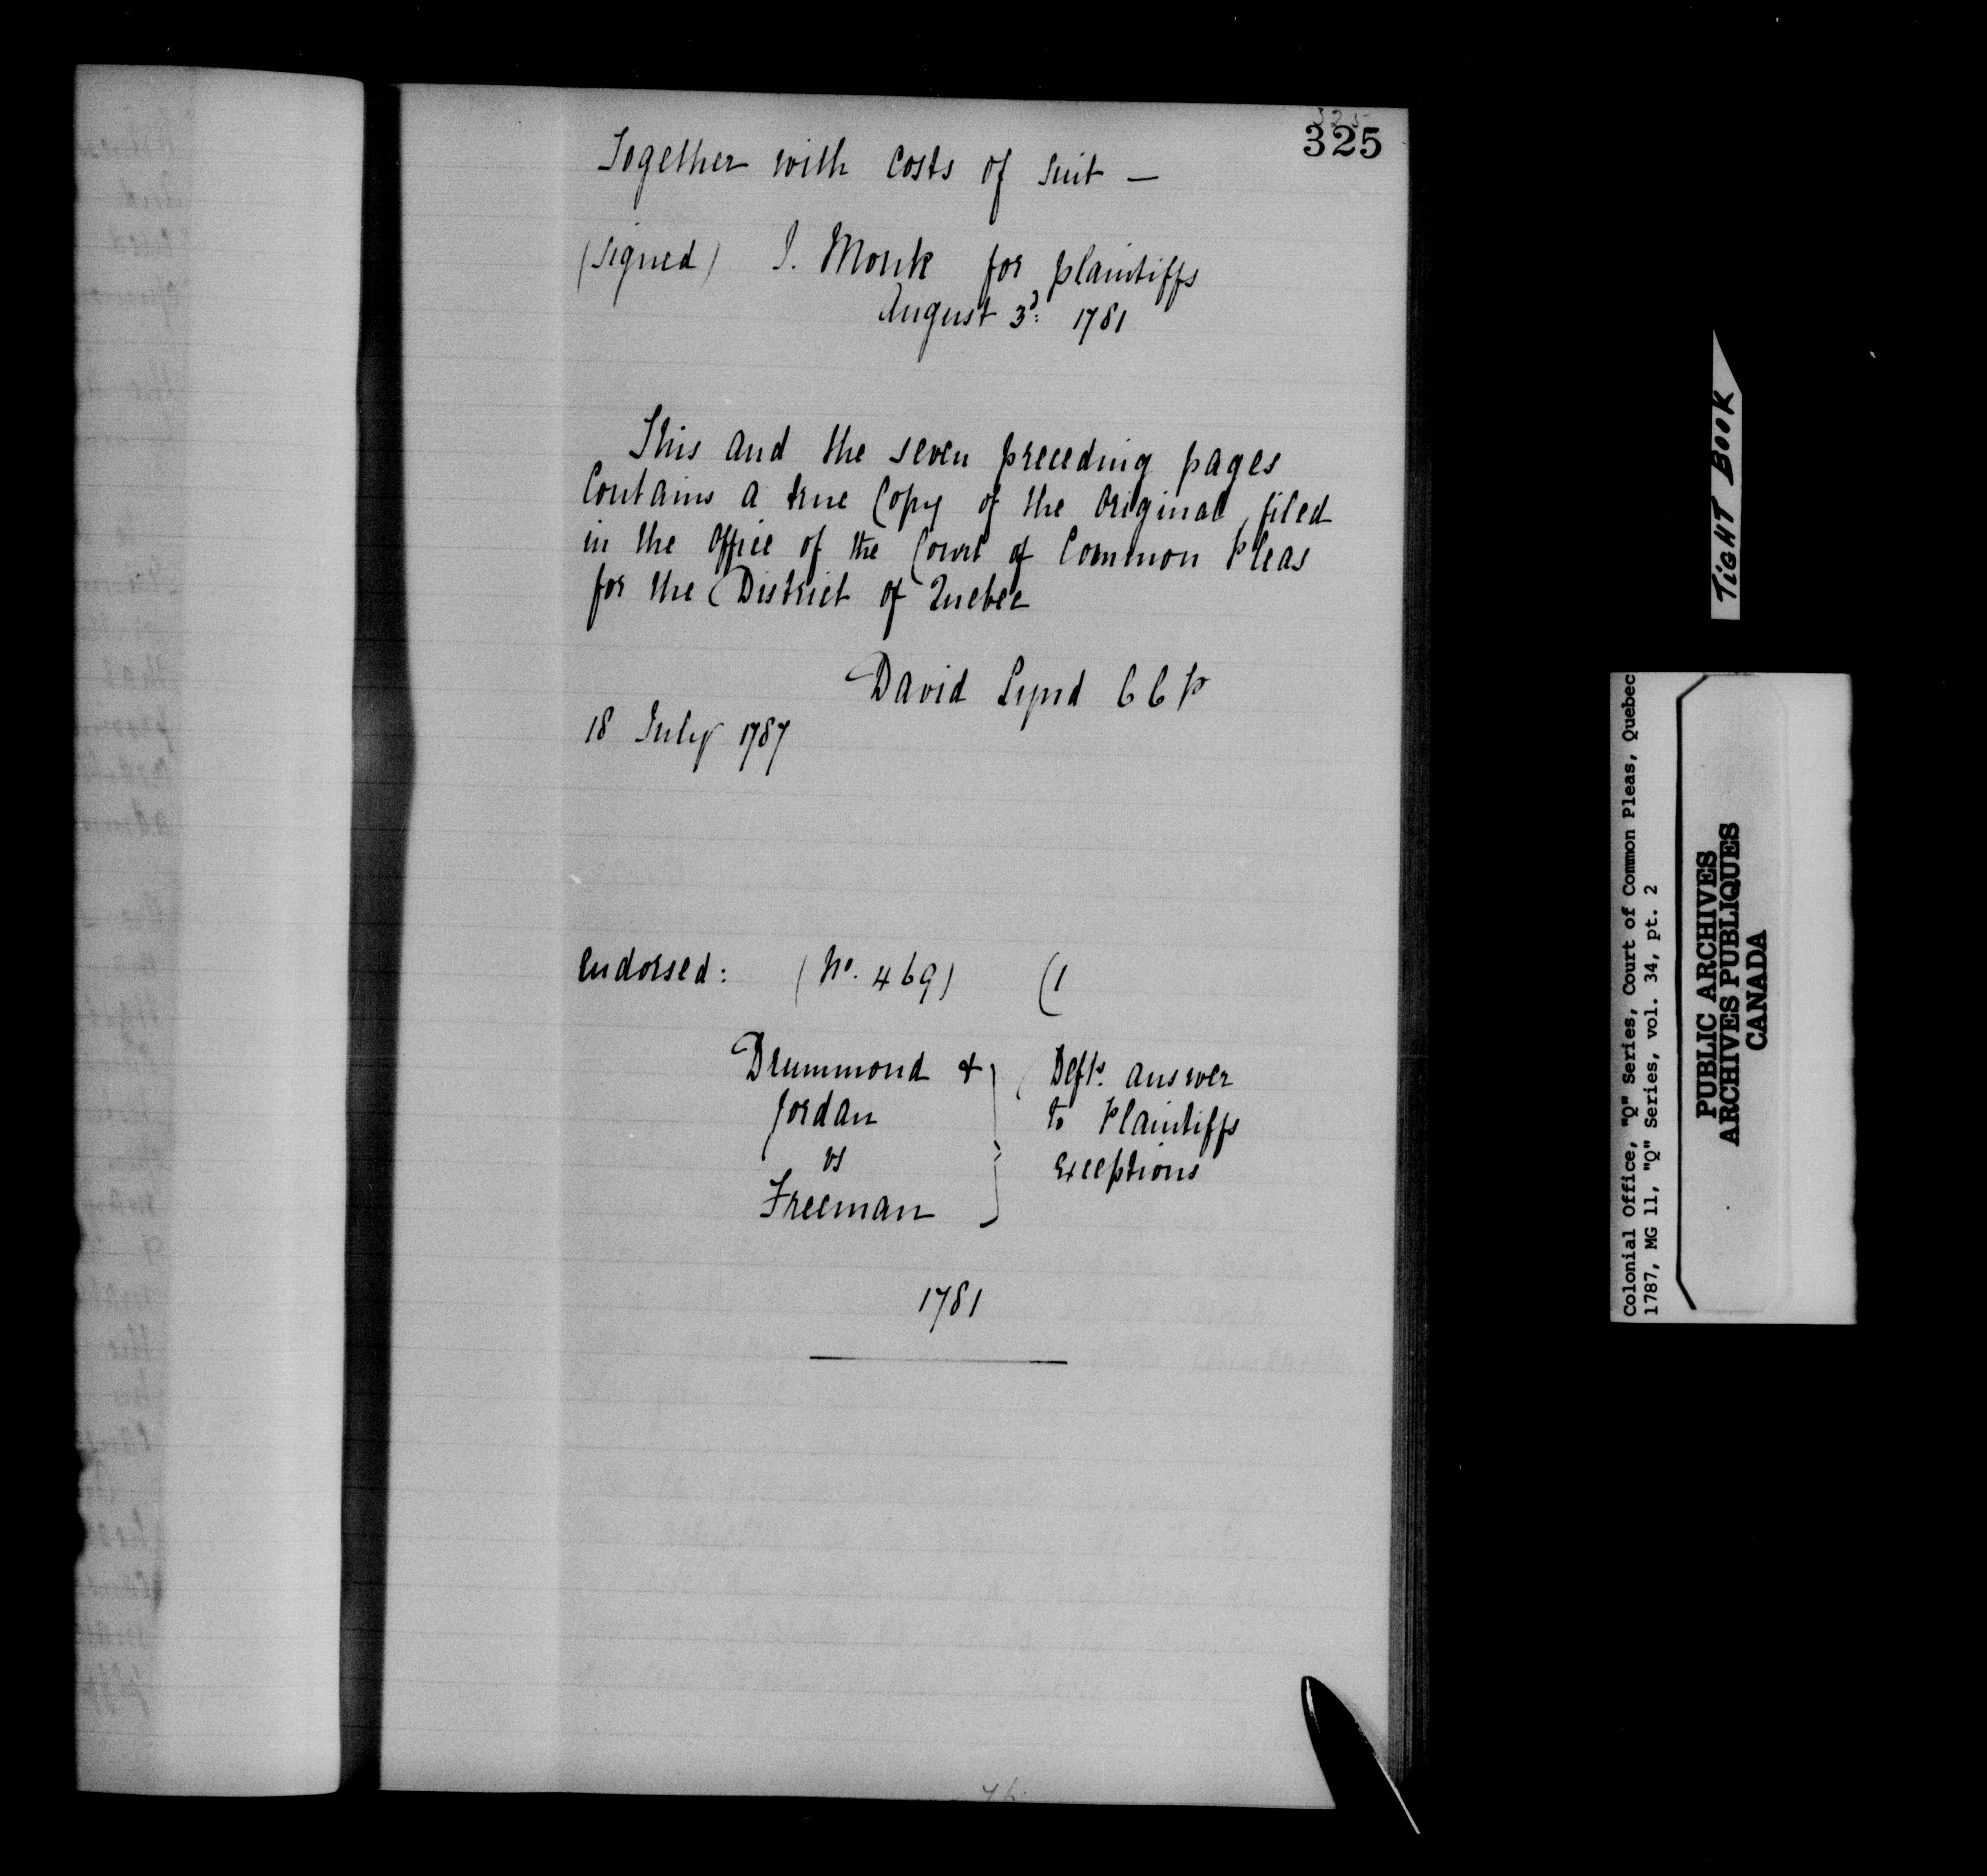 325
325
Together with Costs of Suit —
(signed) J. Monk for plaintiffs
August 3d: 1781
This and the seven preceding pages
Contains a true Copy of the Original filed
in the Office of the Court of Common Pleas
for the District of Quebec
David Lynd C C P
18 July 1787
endorsed: (No. 469) (1
Drummond & Jordan vs Freeman
Defts. answer
to Plaintiffs
Exceptions
1781
TIGHT BOOK
Colonial Office, "Q" Series, Court of Common Pleas, Quebec
1787, MG 11, "Q" Series, vol. 34, pt. 2
PUBLIC ARCHIVES
ARCHIVES PUBLIQUES
CANADA